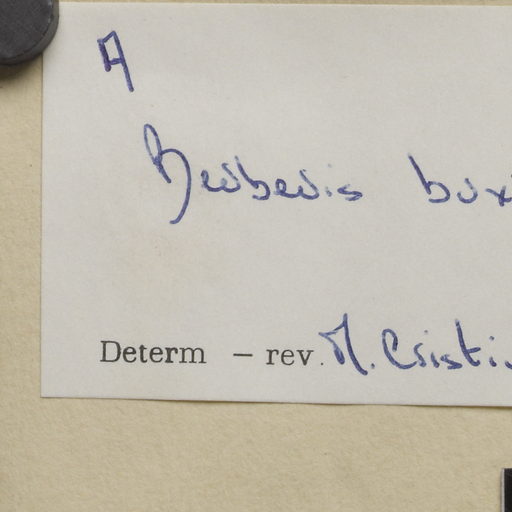 A
Berberis bux
Determ – rev. M. Cristi